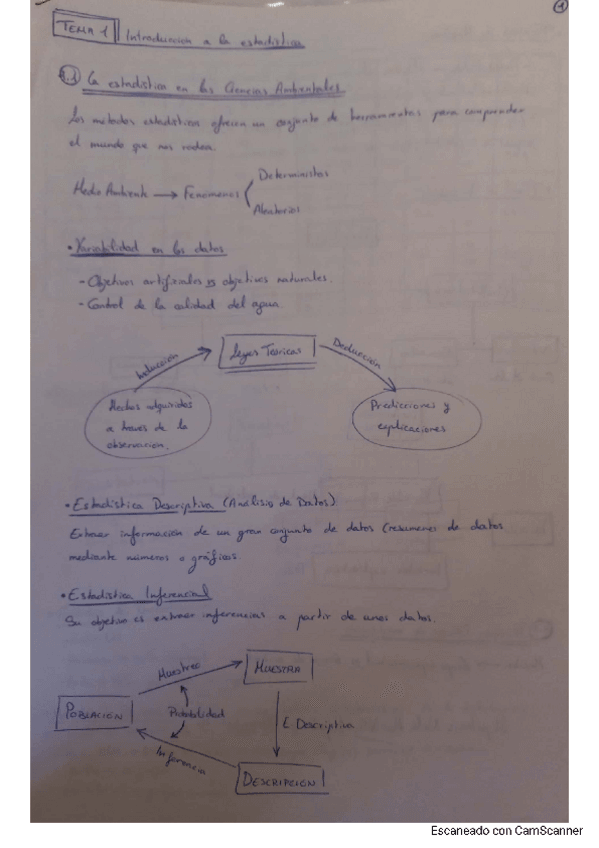 1
TEMA 1 Introducción a la estadística
1.1 La estadística en las Ciencias Ambientales
Los métodos estadísticos ofrecen un conjunto de herramientas para comprender
el mundo que nos rodea.
Medio Ambiente → Fenómenos
Deterministas
Aleatorios
• Variabilidad en los datos
- Objetivos artificiales vs objetivos naturales.
- Control de la calidad del agua.
Inducción
Leyes Teóricas
Deducción
Hechos adquiridos
a través de la
observación.
Predicciones y
explicaciones
• Estadística Descriptiva (Análisis de Datos)
Extraer información de un gran conjunto de datos (resúmenes de datos
mediante números o gráficos
• Estadística Inferencial
Su objetivo es extraer inferencias a partir de unos datos.
Muestreo
MUESTRA
POBLACIÓN
Probabilidad
E. Descriptiva
Inferencia
DESCRIPCIÓN
Escaneado con CamScanner